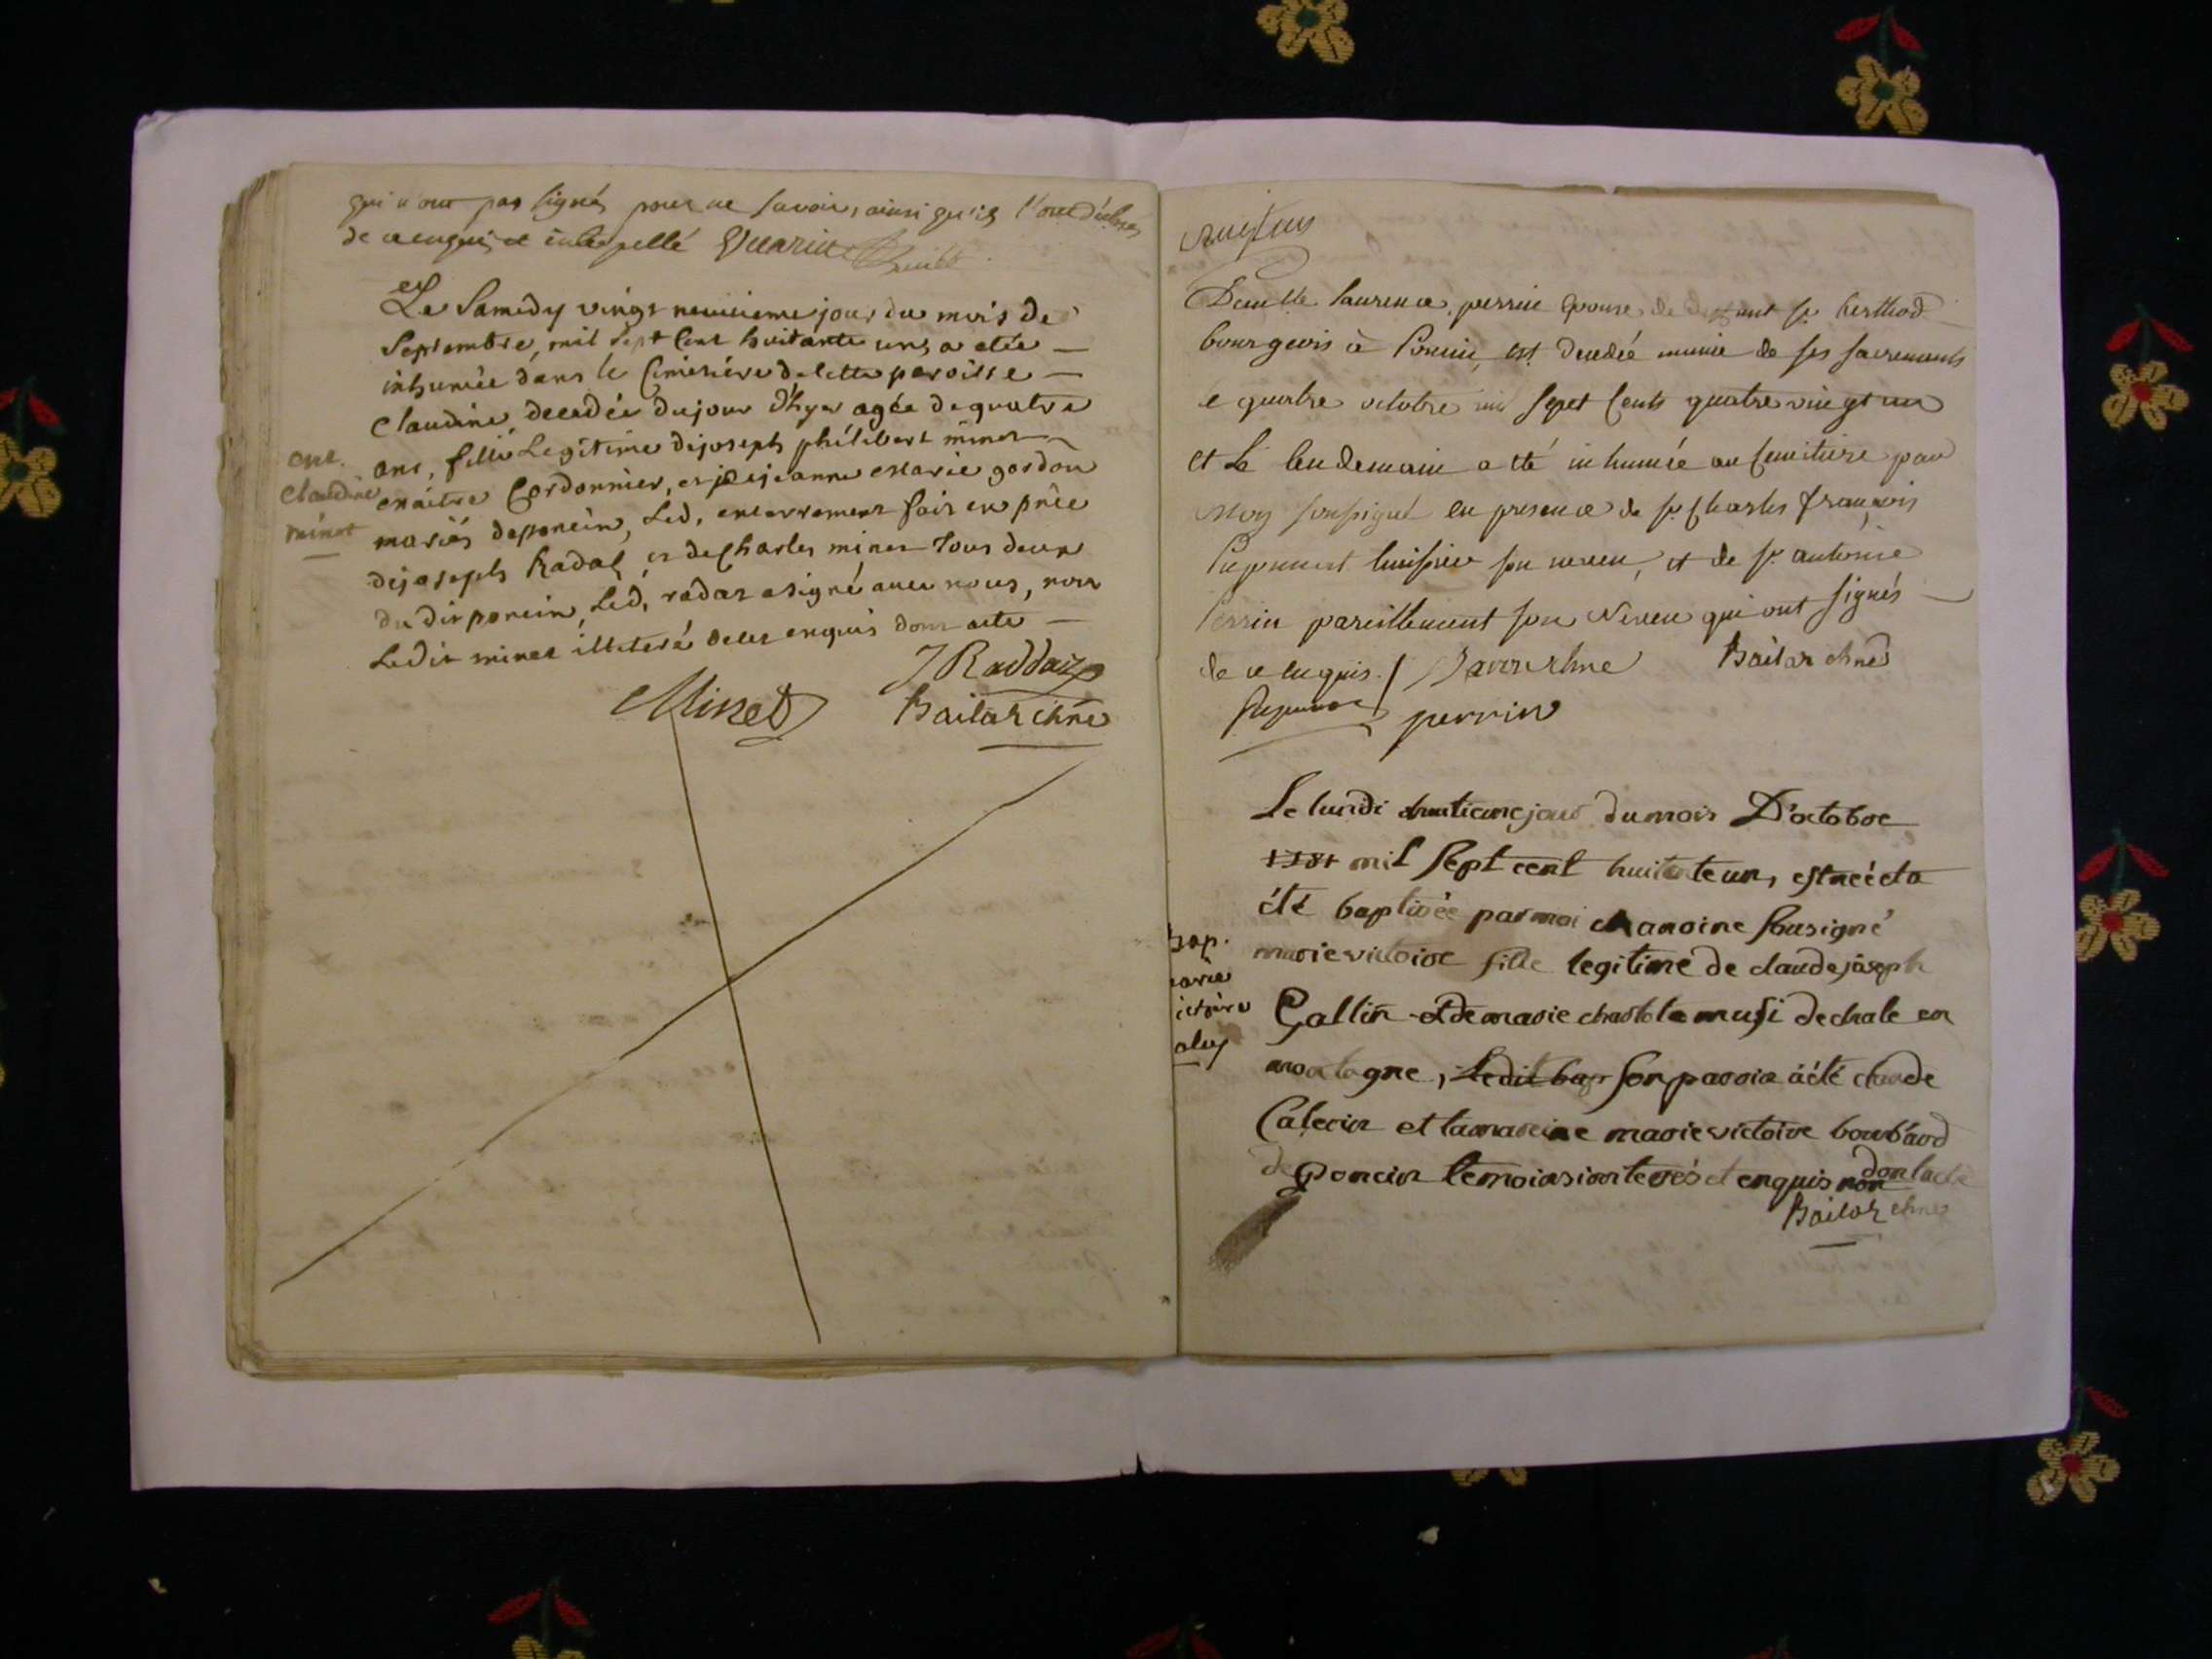 qui n'ont pas signés pour ne savoir, ainsi qu'ils l'ont déclarés
de ce enquis et interpellé
Le Samedy vingt neuvieme jour du mois de
Septembre, mil sept Cent huitante un, a etée —
inhumée dans le Cimetiere de cette paroisse —
Claudine, decedée du jour d'hyer agée de quatre
ans, fille Legitime de joseph philibert minet
maitre Cordonnier, et de jeanne Marie gordon
mariés de poncin, Led, enterrement fait en pnce
de joseph Radaz, et de Charles minet tous deux
du dit poncin, Led, radaz a signé avec nous, non
Ledit minet illiteré de ce enquis dont acte —
Claudine
minet
J Raddaz
Minet Bailat chne
Demlle laurence perrin epouse de deffunt sr. berthod
bourgeois à Poncin, est decedée munie de ses sacrements
le quatre octobre mil sept Cents quatre vingt un
et Le lendemain a été inhumée au Cimitiere par
Moy soussigné en presence de sr. Charles françois
huissier son neveu, et de sr. antoine
Perrin pareillement son Neveu qui ont signés —
de ce enquis. / Bailat chne
perrin
Le lundi huitieme jour du mois D'octobre
1781 mil Sept cent huitante un, est née et a
été baptisée par moi chanoine Sousigné
marie victoire fille legitime de claude joseph
Gallin et de marie charlotte musi de chale en
montagne, Ledit bap son parrin a été claude
et la maraine marie victoire
de poncin temoins inliterés et enquis non dont acte
Bailat chne
bap.